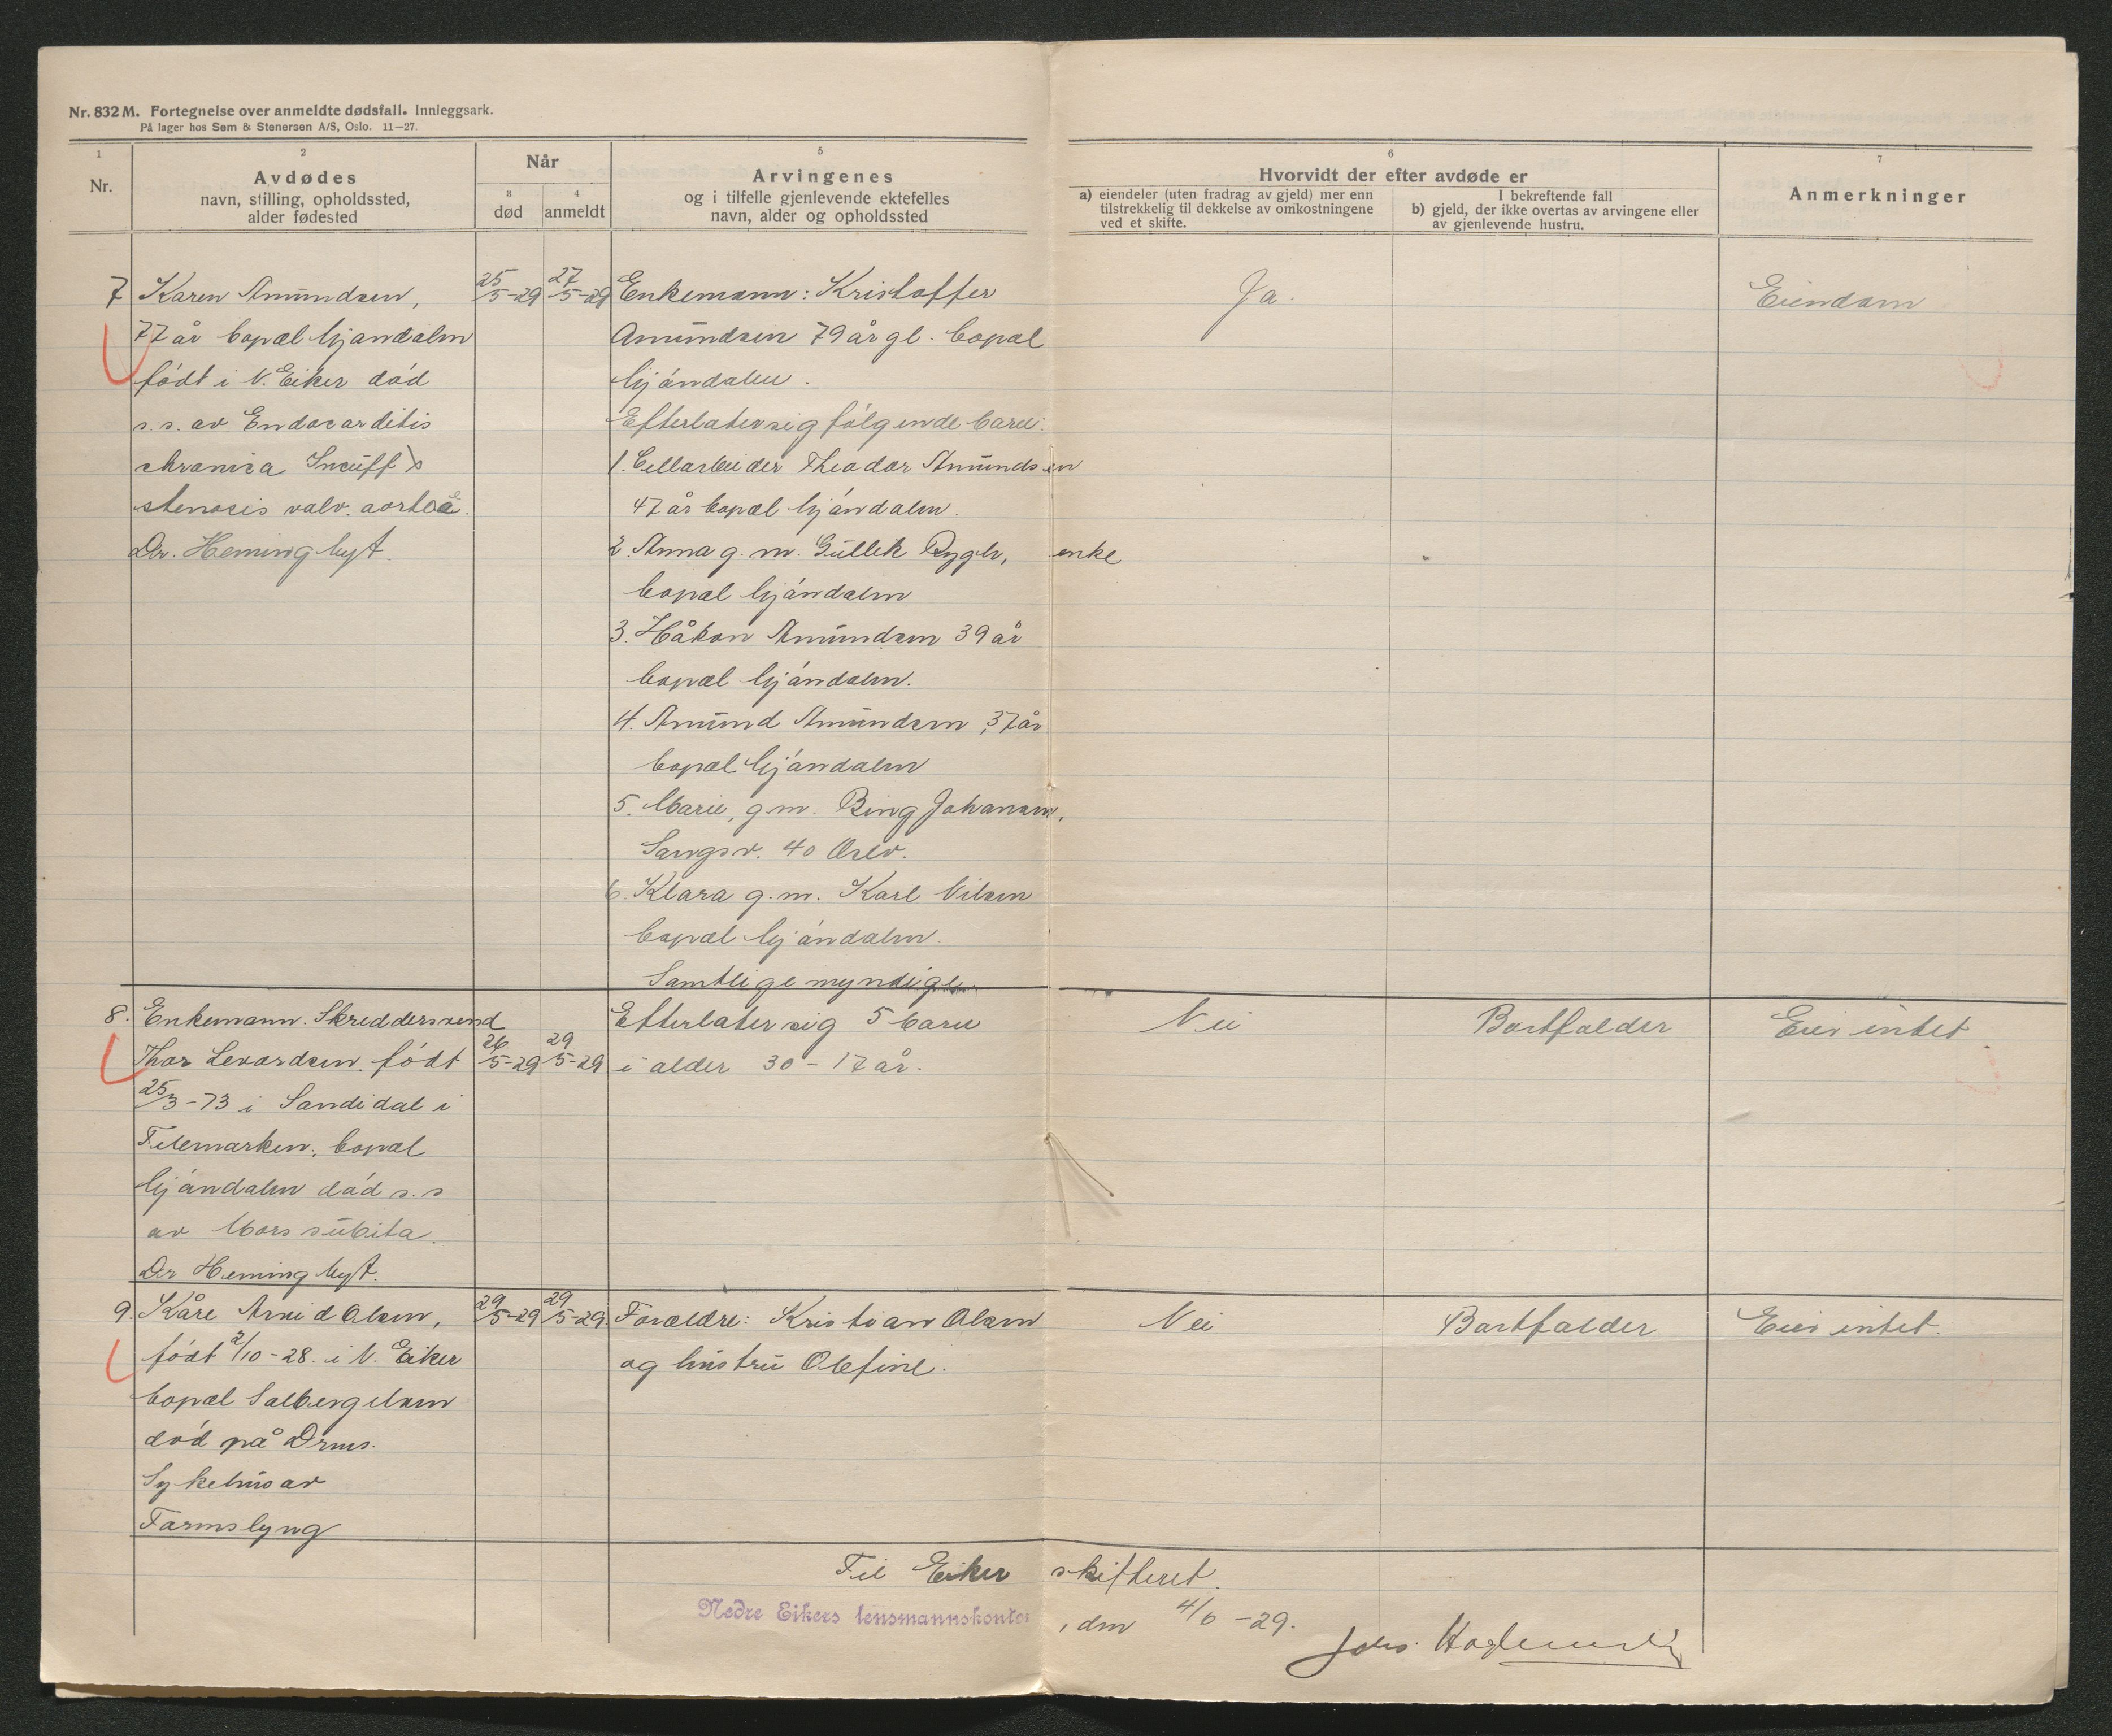 Nr. 832 M. Fortegnelse over anmeldte dødsfall. Innleggsark.
På lager hos Sem & Stenersen A/S, Oslo. 11—27.
1
Nr.
2
Avdødes
navn, stilling, opholdssted,
alder fødested
Når
3
død
4
anmeldt
5
Arvingenes
og i tilfelle gjenlevende ektefelles
navn, alder og opholdssted
6
Hvorvidt der efter avdøde er
a) eiendeler (uten fradrag av gjeld) mer enn
tilstrekkelig til dekkelse av omkostningene
ved et skifte.
I bekreftende fall
b) gjeld, der ikke overtas av arvingene eller
av gjenlevende hustru.
7
Anmerkninger
7 Karen Amundsen,
77 år bopæl Mjøndalen
født i N. Eiker død
s. s. av Endocarditis
chronica Insuff
stenosis valv. aortae.
Dr. Heming Myt.
25/5-29
27/5-29
Enkemann: Kristoffer
Amundsen 79 år gl. bopæl
Mjøndalen.
Efterlater sig følgende barn:
1. Cellarbeider Theodor Amundsen
47 år bopæl Mjøndalen.
2. Anna g. m. Gullek enke
bopæl Mjøndalen
3. Håkon Amundsen 39 år
bopæl Mjøndalen.
4. Amund Amundsen, 37 år
bopæl Mjøndalen
5. Marie, g m. Bing Johansen,
40 Oslo.
6. Klara g. m. Karl Nilsen
bopæl Mjøndalen.
Samtlige myndige
Ja.
Eiendom
8. Enkemann. Skreddersvend
Thor Levordsen. født
25/3-73 i Sandidal i
Telemarken; bopæl
Mjøndalen død s. s
av Mors subita.
Dr Heming Myt.
26/5-29
29/5-29
Efterlater sig 5 barn
i alder 30 - 17 år.
Nei
Bortfalder
Eier intet
9. Kåre Arvid Olsen,
født 2/10-28. i N. Eiker
bopæl Solbergelven
død på Drms.
Sykehus av
Tarmslyng
29/5-29
29/5-29.
Forældre: Kristian Olsen
og hustru Olefine.
Nei
Bortfalder
Eier intet.
Til Eiker skifteret.
Nedre Eikers lensmannskontor, den 4/6 -29.